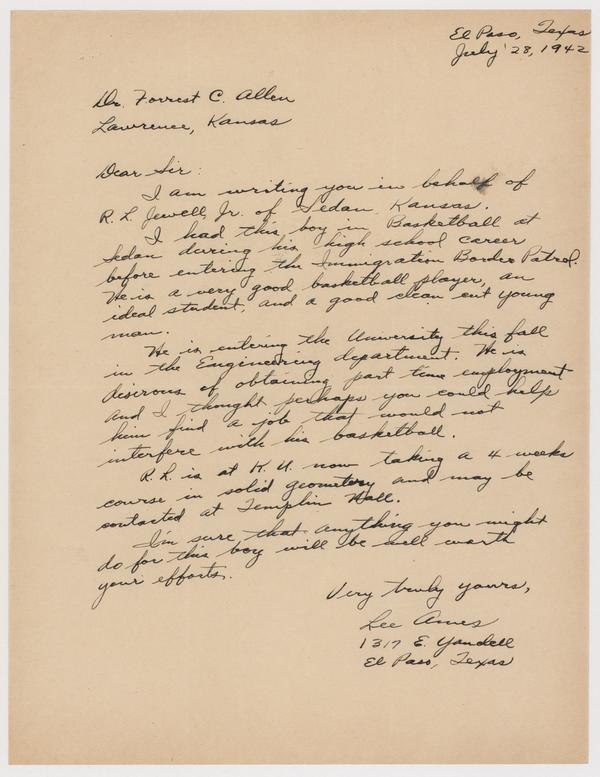 El Paso, Texas
July 28, 1942
Dr. Forrest C. Allen
Lawrence, Kansas
Dear Sir:
I am writing you in behalf of
R. L. Jewell, Jr. of Sedan, Kansas.
I had this boy in Basketball at
Sedan during his high school career
before entering the Immigration Border Patrol.
He is a very good basketball player, an
ideal student, and a good clean cut young
man.
He is entering the University this fall
in the Engineering department. He is
disirous of obtaining part time employment
and I thought perhaps you could help
him find a job that would not
interfere with his basketball.
R. L. is at K. U. now taking a 4 weeks
course in solid geometery and may be
contacted at Templin Hall.
I'm sure, that anything you might
do for this boy will be well worth
your efforts.
Very truly yours,
Lee Ames
1317 E. Yandell
El Paso, Texas